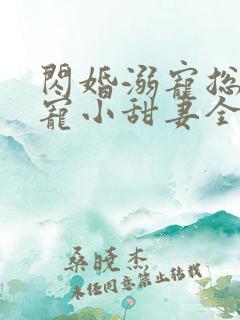 閃婚溺寵总
寵小甜妻全
桑晓杰
未经同意禁止转载